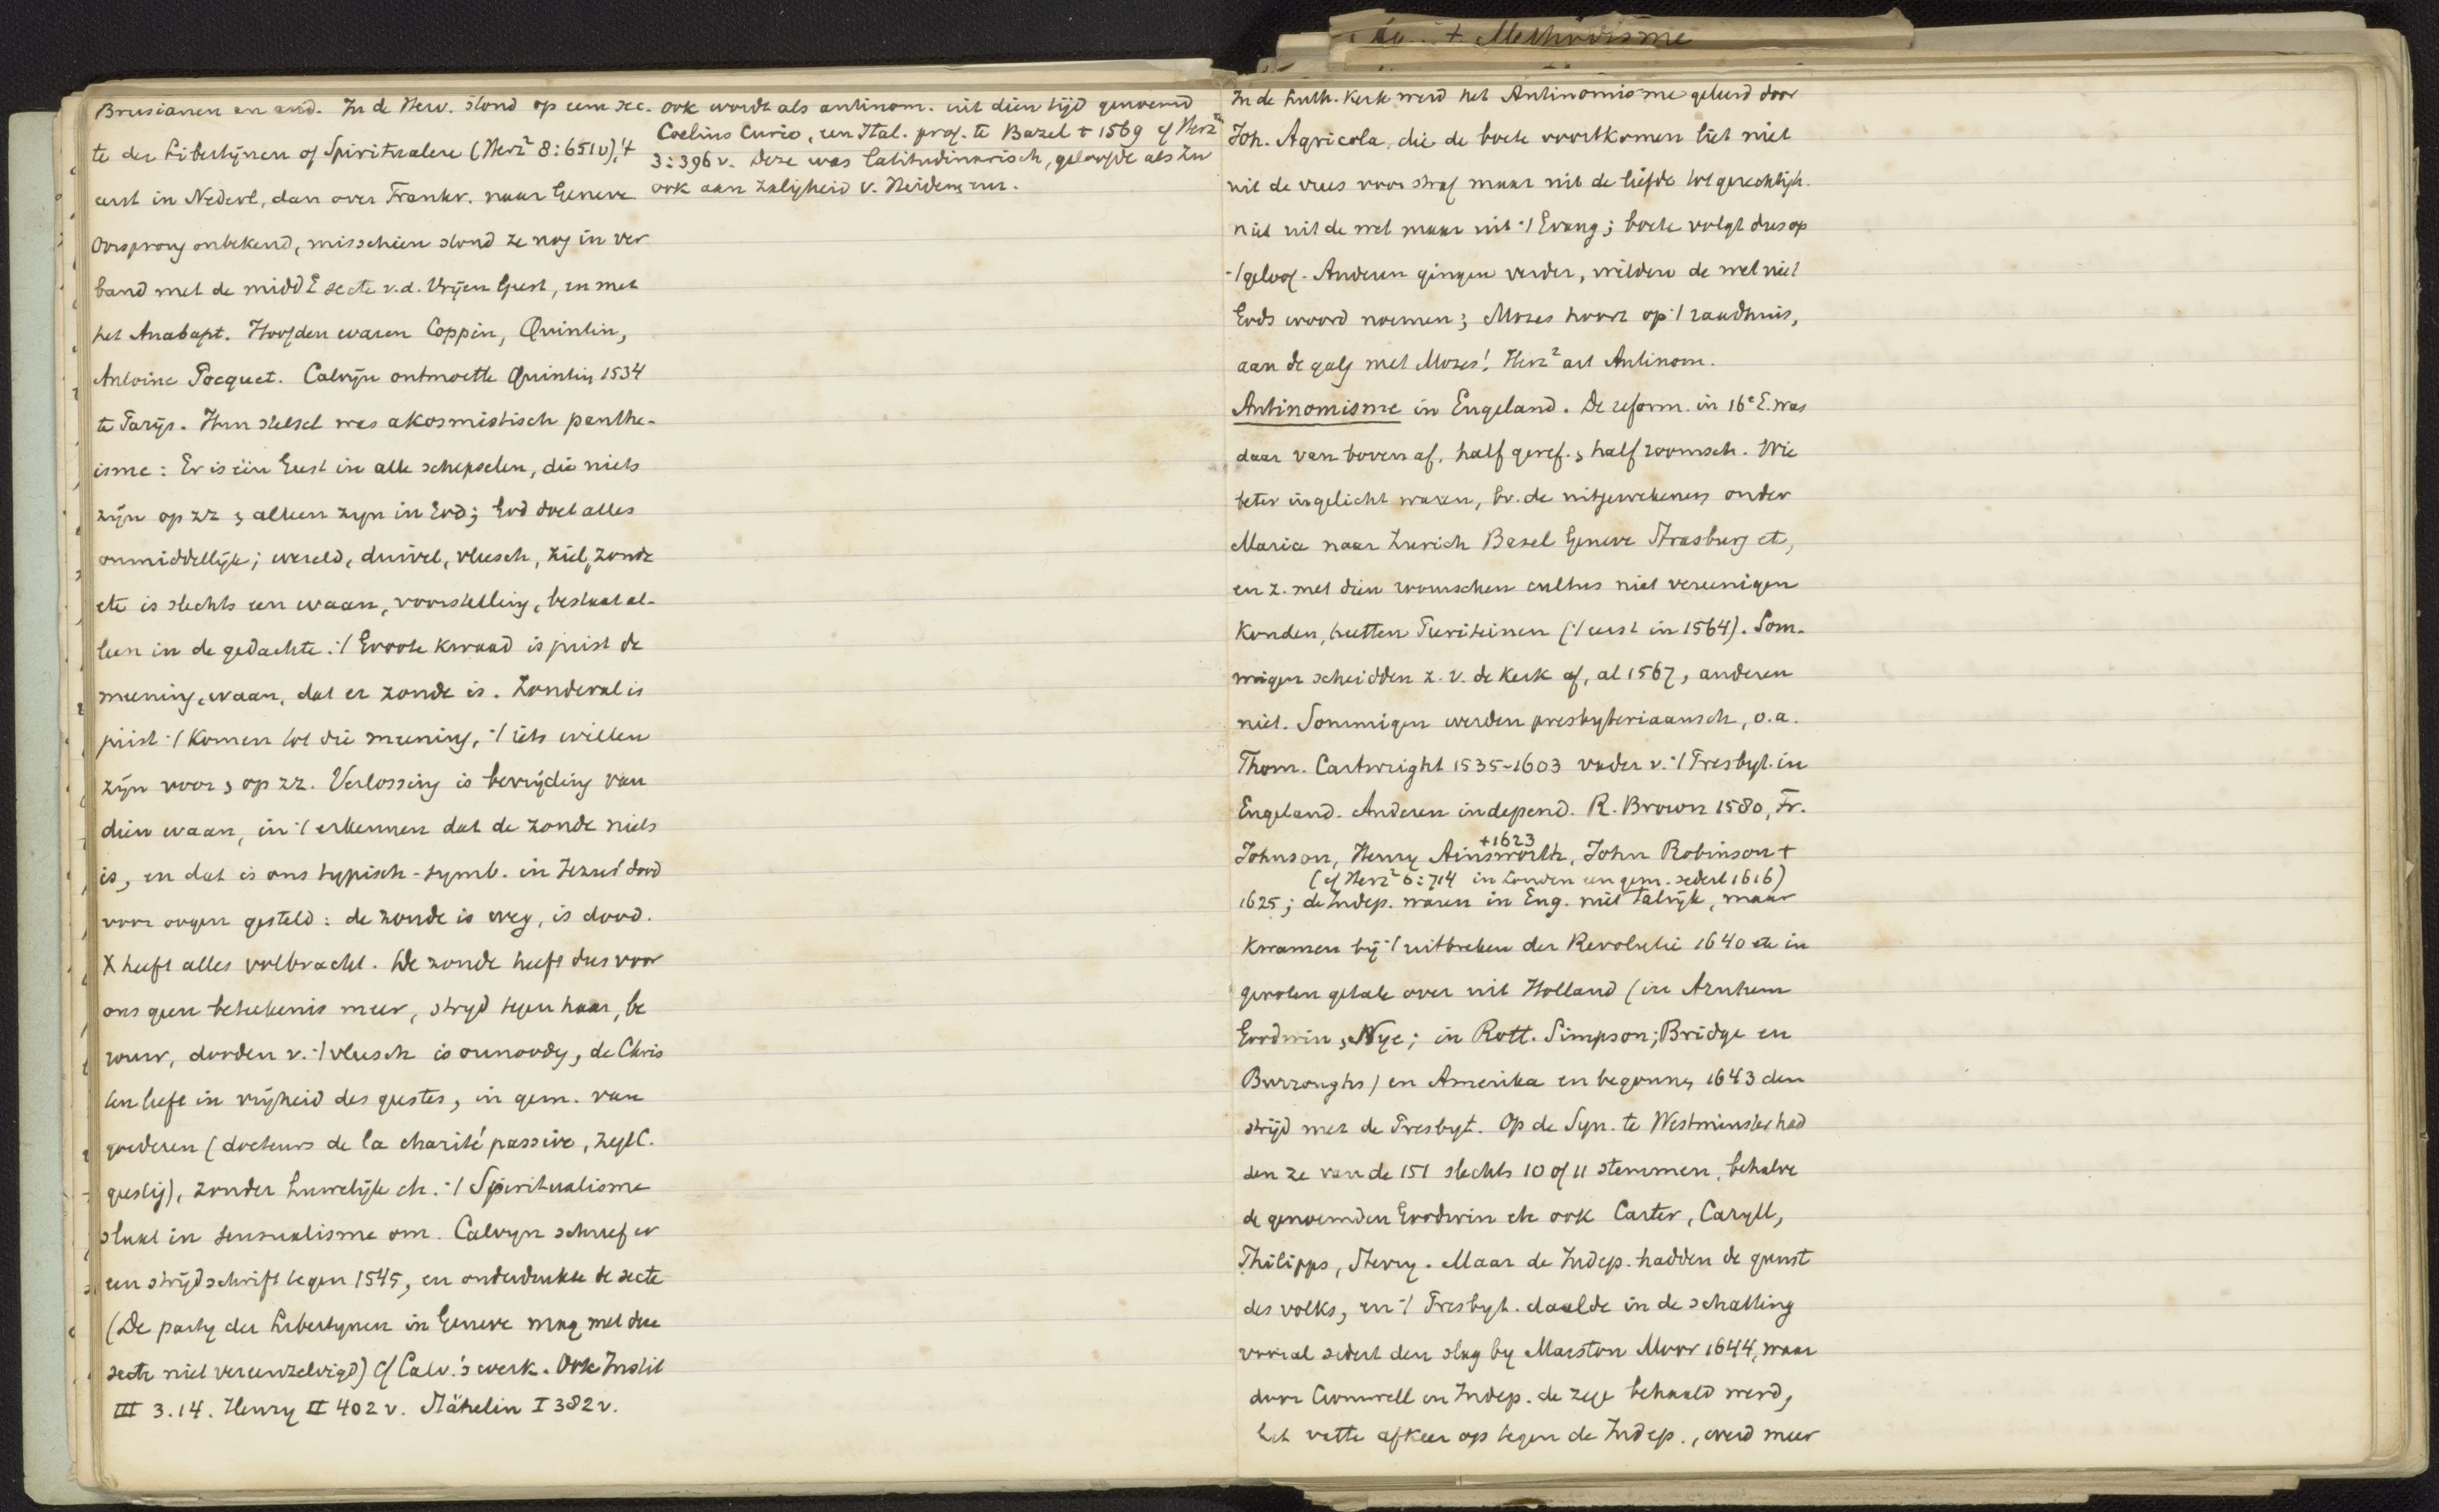 + Methodisme
Brusianen en and. In de Herv. stond op eem sec-
te der Libertijnen of Spiritualere (Herz² 8:651v), 't
eerst in Nederl, dan over Frankr. naar Geneve
Oorsprong onbekend, misschien stond ze nog in ver
band met de midd E secte v.d. Vrijen Geest, en met
het Anabapt. Hoofden waren Coppin, Quintin,
Antoine Pocquet. Calvijn ontmoette Quintin 1534
te Parijs. Hun stelsel was akosmistisch panthe-
isme: Er is één Geest in alle schepselen, die niets
zijn op zz & alleen zijn in God; God doet alles
onmiddellijk; wereld, duivel, vleesch, ziel, zonde
etc is slechts een waan, voorstelling, bestaat al-
leen in de gedachte. 't Groote kwaad is juist de
meening, waan, dat er zonde is. Zondeval is
juist 't komen tot die meening, 't iets willen
zijn voor & op zz. Verlossing is bevrijding van
dien waan, in 't erkennen dat de zonde niets
is, en dat is ons typisch-symb. in Jezus' dood
voor oogen gesteld: de zonde is weg, is dood.
X heeft alles volbracht. De zonde heeft dus voor
ons geen beteekenis meer, strijd tegen haar, be
rouw, dooden v. 't vleesch is onnoodig, de Chris
ten leeft in vrijheid des geestes, in gem. van
goederen (docteurs de la charité passive,
geestig), zonder huwelijk etc. 't Spiritualisme
slaat in sensualisme om. Calvyn schreef er
een strijdschrift tegen 1545, en onderdrukte de secte
(De party der Libertynen in Geneve mag met die
secte niet vereenzelvigd) cf Calv.'s werk. Ook Instit
III 3.14. Henry II 402 v. Stähelin I 382 v.
ook wordt als antinom. uit dien tijd genoemd
Coelius Curio, een Ital. prof. te Bazel + 1569 cf Herz²
3:396 v. Deze was latitudinarisch, geloofde als Zw
ook aan zaligheid v. Heidenen.
In de Luth. Kerk werd het Antinomisme geleerd door
Joh. Agricola, die de boete voortkomen liet niet
uit de vrees voor straf maar uit de liefde tot gerechtigh.
niet uit de wet maar uit 't Evang; boete volgt dus op
't geloof. Anderen gingen verder, wilden de wet niet
Gods woord noemen; Mozes hoort op 't raadhuis,
aan de galg met Mozes! Herz² art Antinom.
Antinomisme in Engeland. De reform. in 16e E. was
daar van boven af, half geref. & half roomsch. Wie
beter ingelicht waren, bv. de uitgewekenen onder
Maria naar Zurich Basel Geneve Strasburg etc,
en z. met dien roomschen cultus niet vereenigen
konden, heetten Puriteinen ('t eerst in 1564). Som-
migen scheidden z. v. de Kerk af, al 1567, anderen
niet. Sommigen werden presbyteriaansch, o.a.
Thom. Cartwright 1535-1603 vader v. 't Presbyt. in
Engeland. Anderen independ. R. Brown 1580, Fr.
+1623
Johnson, Henry Ainsworth, John Robinson +
(cf Herz² 6:714 in Londen een gem. sedert 1616)
1625; de Indep. waren in Eng. niet talrijk, maar
kwamen bij 't uitbreken der Revolutie 1640 etc in
grooten getale over uit Holland (in Arnhem
Goodwin, Nye; in Rott. Simpson; Bridge en
Burroughs) en Amerika en begonnen 1643 den
strijd met de Presbyt. Op de Syn. te Westminster had
den ze van de 151 slechts 10 of 11 stemmen, behalve
de genoemden Goodwin etc ook Carter, Caryll,
Philipps, Sterry. Maar de Indep. hadden de gunst
des volks, en 't Presbyt. daalde in de schatting
vooral sedert den slag by Marston Moor 1644, waar
door Cromwell en Indep. de zege behaald werd,
het vatte afkeer op tegen de Indep., werd meer